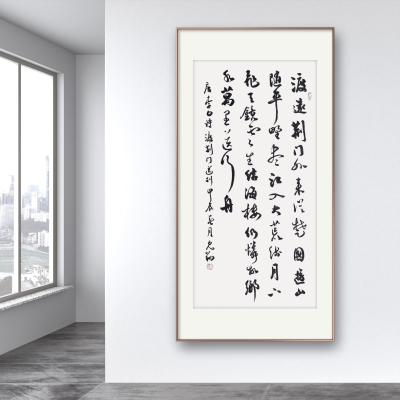 渡遠荆门外来從楚國遊山
随平野尽江入大荒流月下
飛天鏡雲生結海樓仍憐故鄉
水萬里送行舟
唐李白诗渡荆门送别甲辰夏月